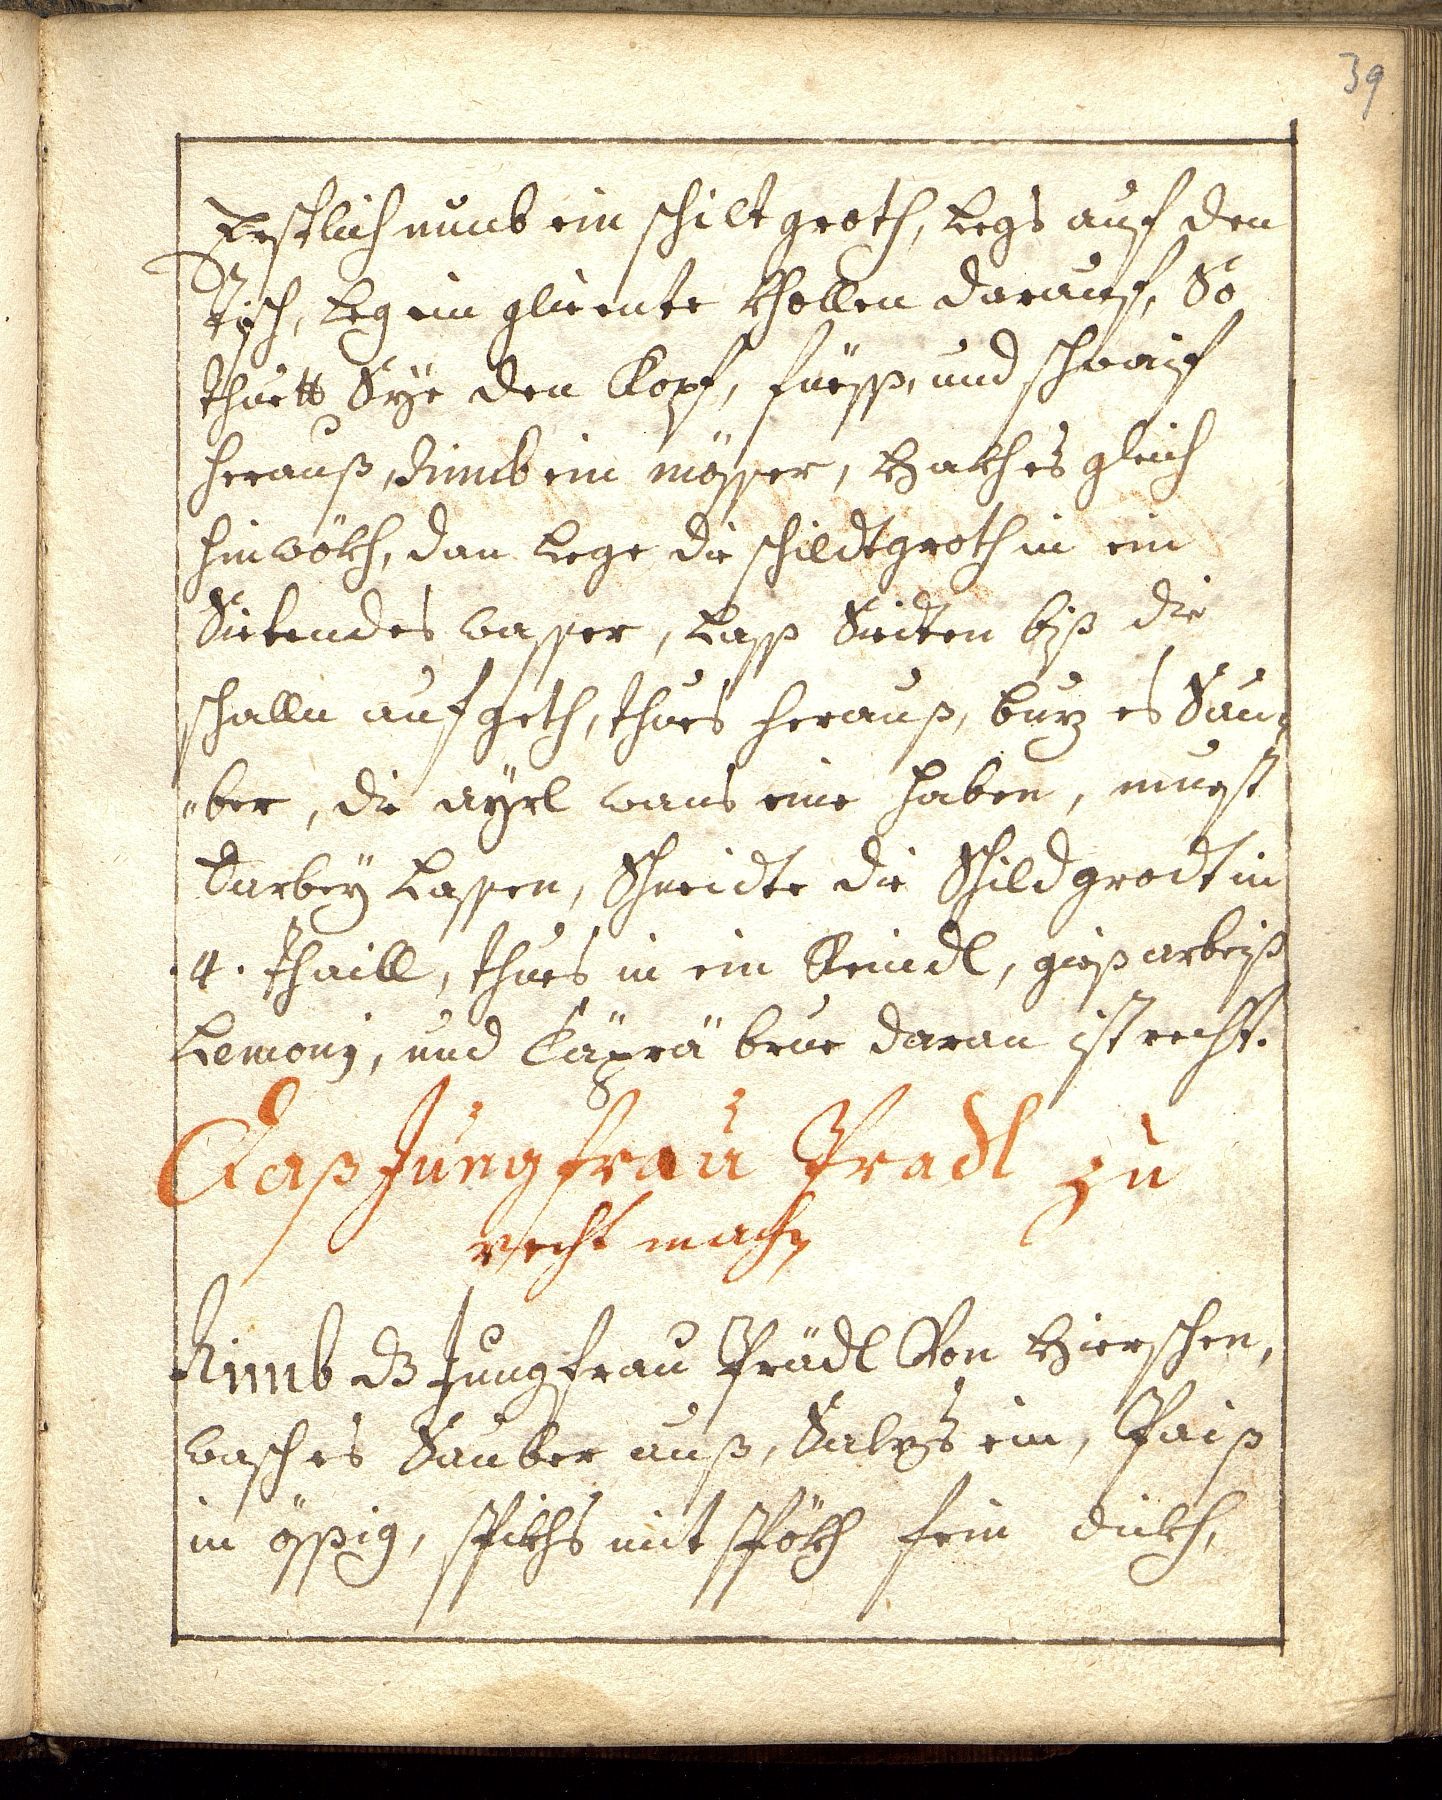 39
Erstlich nimb ein schilt groth, Legs auf den
Tisch, Leg ein glieente khollen darauf, So
thuett Sÿe den Kopf, füess, und schwaif
herauß, Nimb ein mösser, Hakh es gleich
hinwökh, dan Lege die schildtgroth in ein
Sietendes wasser, Lass Siedten biß die
schalln auf geth, thues herauß, buz es Sau¬
ber, die aÿrl wans eine haben, muest
Darbeÿ Lassen, Schneidte die Schildgrodt in
.4. thaill, thues in ein Reindl, gieß arbeiß
Lemonj, und Cäprä brue daran ist recht.
Daß Jungfrau Pradl zu
recht machn
Nimb dz Jungfrau Prädl Von Hierschen,
wasch es Sauber auß, Salz's ein, Paiß
in össig, spikhs mit spökh fein dikh,